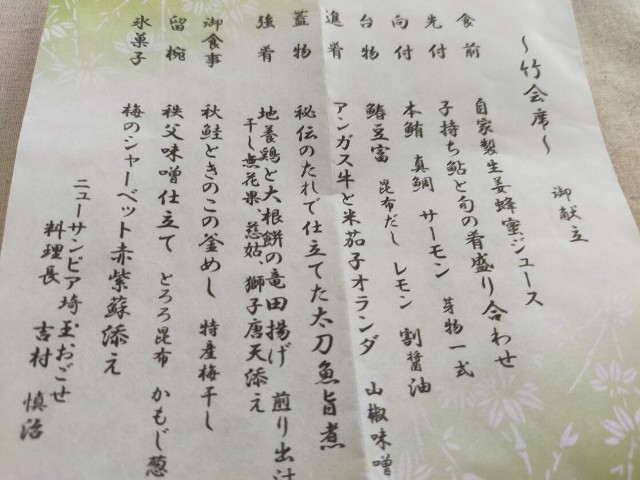 御献立
～竹会席～
食前 自家製生姜蜂蜜ジュース
先付 子持ち鮎と旬の肴盛り合わせ
向付 本鮪 真鯛 サーモン 芽物一式
台物 鰆立富 昆布だし レモン 割醤油
進肴 アンガス牛と米茄子オランダ 山椒味噌
蓋物 秘伝のたれで仕立てた太刀魚旨煮
強肴 地養鶏と大根餅の竜田揚げ 煎り出汁
干し無花果、慈姑、獅子唐天添え
御食事 秋鮭ときのこの釜めし 特産梅干し
留椀 秩父味噌仕立て とろろ昆布 かもじ葱
氷菓子 梅のシャーベット赤紫蘇添え
ニューサンピア埼玉おごせ
料理長 吉村 慎治